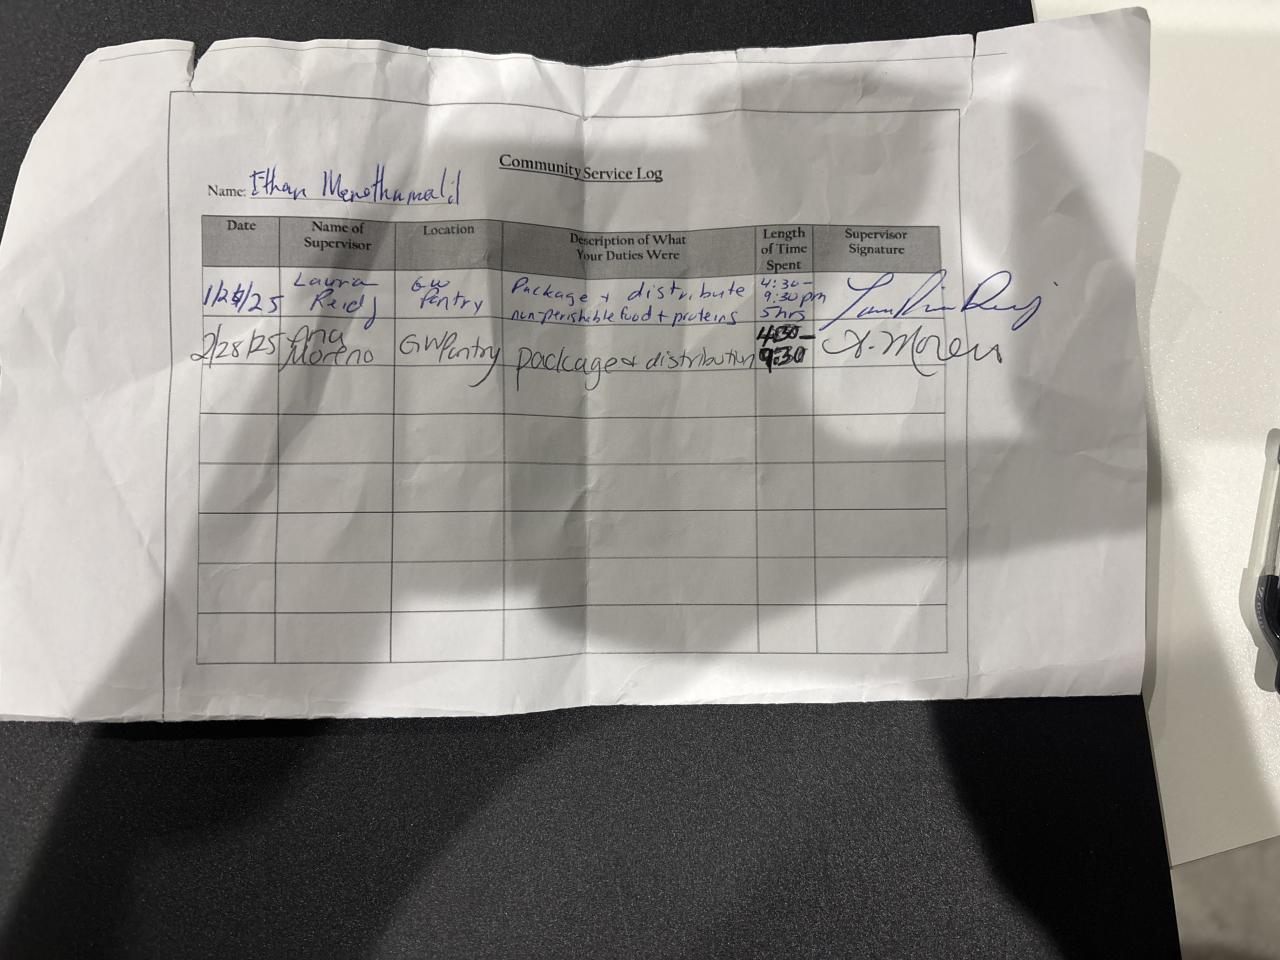 Community Service Log
Name: Ethan
Date
Name of
Supervisor
Location
Description of What
Your Duties Were
Length
of Time
Spent
Supervisor
Signature
Laura
Reidy
GW
Pantry
Package + distribute
non-perishable food + proteins
4:30-
9:30pm
5hrs
2/28/25
Ana
Moreno
GW Pantry
package + distribution
4:30-
9:30